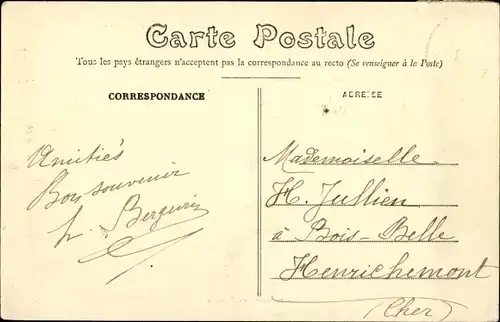 Carte Postale
Tous les pays étrangers n'acceptent pas la correspondance au recto (Se renseigner à la Poste)
CORRESPONDANCE
ADRESSE
Amitiés
Bon souvenir
Mademoiselle
H. Jullien
à Bois-Belle
Henrichemont
(Cher)